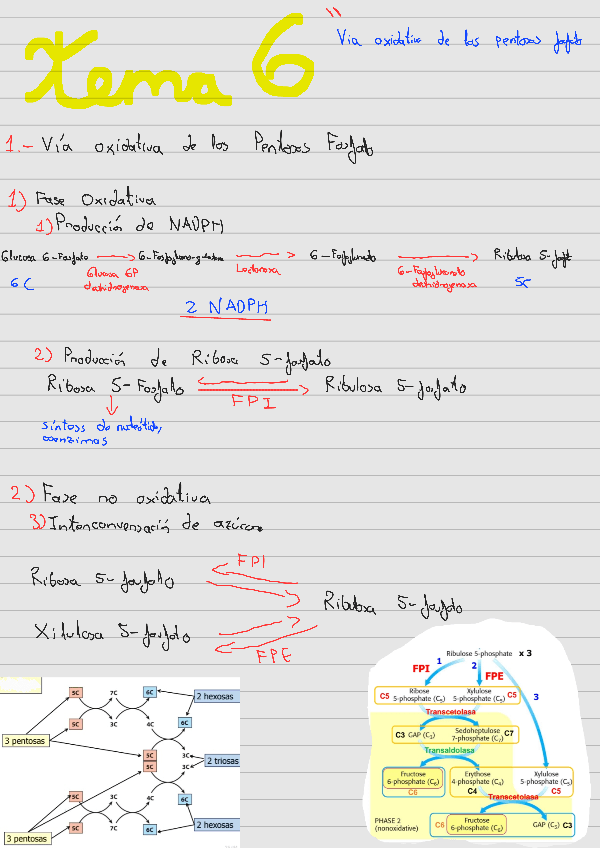 "
Via oxidativa de las pentosas fosfato
Tema 6
1.- Vía oxidativa de las Pentosas Fosfato
1) Fase Oxidativa
1) Producción de NADPH
Glucosa 6-Fosfato 6-Fosfoglucono-γ-lactona 6-Fosfogluconato Ribulosa 5-fosft
Glucosa 6P deshidrogenasa
Lactonasa
6-Fosfogluconato deshidrogenasa
6C
5C
2 NADPH
2) Producción de Ribosa 5-fosfato
Ribosa 5-Fosfato Ribulosa 5-fosfato
FPI
síntesis de nucleótidos,
coenzimas
2) Fase no oxidativa
3) Interconversación de azúcares
FPI
Ribosa 5-fosfato
Ribulosa 5-fosfato
Xilulosa 5-fosfato
FPE
5C 7C 6C
2 hexosas
5C 3C 4C 6C
3 pentosas
5C 3C
5C 3C
2 triosas
5C 3C 4C 6C
5C 7C 6C
3 pentosas
2 hexosas
Ribulose 5-phosphate x 3
1 2
FPI FPE
3
C5 Ribose 5-phosphate (C5) Xylulose 5-phosphate (C5) C5
Transcetolasa
C3 GAP (C3) Sedoheptulose 7-phosphate (C7) C7
Transaldolasa
Fructose 6-phosphate (C6) Erythose 4-phosphate (C4) Xylulose 5-phosphate (C5)
C6 C4 C5
Transcetolasa
PHASE 2
(nonoxidative)
C6 Fructose 6-phosphate (C6) GAP (C3) C3